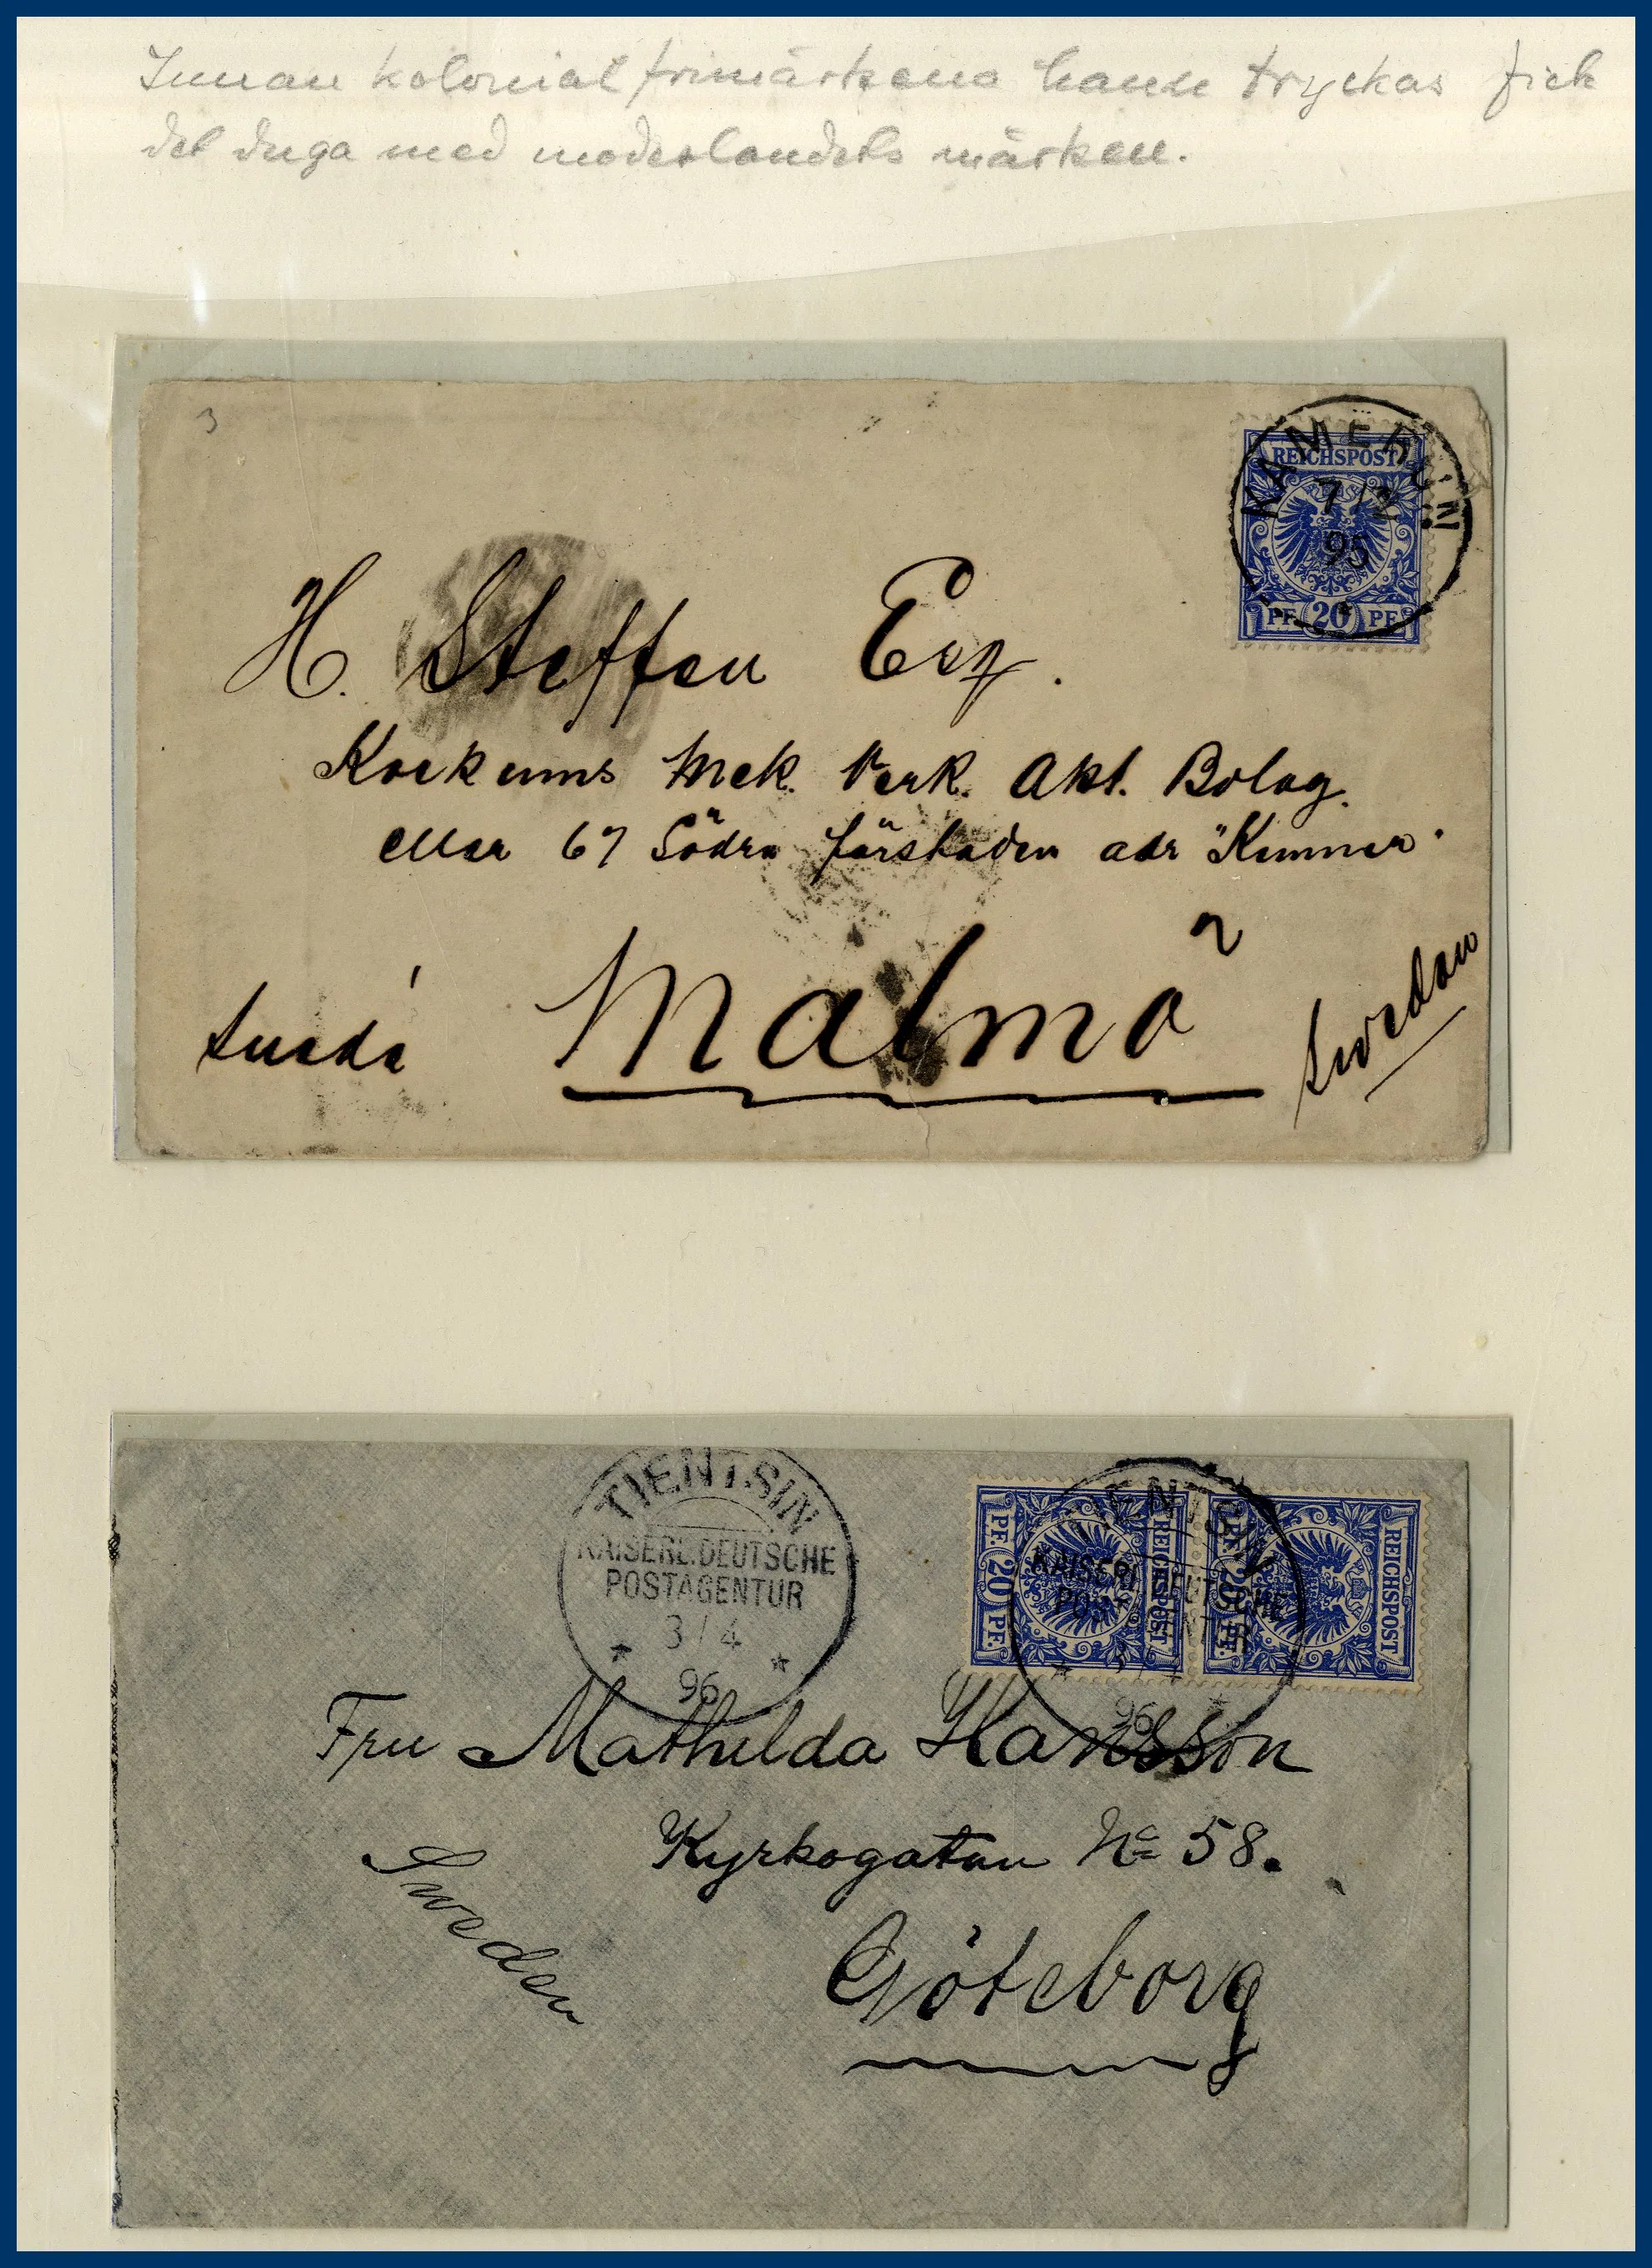 Innan kolonialfrimärkena hann tryckas fick
det duga med moderlandets märken.
3
KAMERUN
7/2
95
REICHSPOST
PF 20 PF
H. Steffen Esq.
Kockums Mek. Verk. Akt. Bolag.
eller 67 Södra förstaden adr
Suède
Malmö
Sweden
TIENTSIN
KAISERL.DEUTSCHE
POSTAGENTUR
3/4
96
TIENTSIN
KAISERL. DEUTSCHE
POSTAGENTUR
3/4
96
REICHSPOST
PF. 20 PF.
REICHSPOST
PF. 20 PF.
Fru Mathilda Hansson
Kyrkogatan No 58.
Sweden
Göteborg